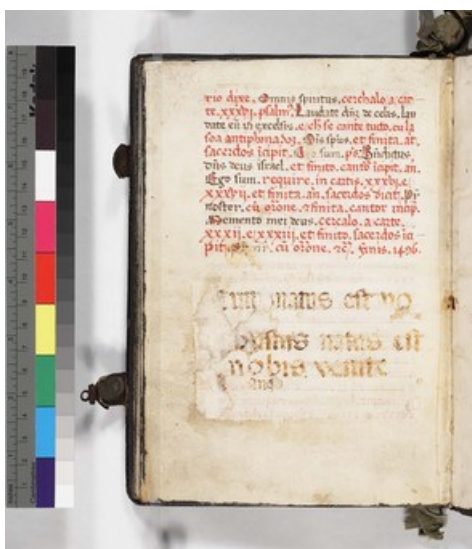 rio dixe. Omnis spiritus. cerchalo a car
te. xxxvi. psalm̄. Laudate dn̄z de celis. lau
date eū in excelsis. e ch se cante tucto. cu la
soa antiphona. Oīs sp̄us. et finita. at.
sacerdos īcipit. Ego sum. p̄s. Bn̄dictus
dn̄s deus israel. et finito. cantor īcipit. an.
Ego sum. require. in cartis. xxxvi. e
xxxvii. et finita. an̄. sacerdos dicit. Pr̄
noster. cū orōne. et finita. cantor incip̄.
Memento mei deus. cercalo. a carte.
xxxii. e xxxiii. et finito. sacerdos īci
pit. nr̄. cū orōne. ⁊c̄. finis. 1496.
natus est
natus est
nobis venite